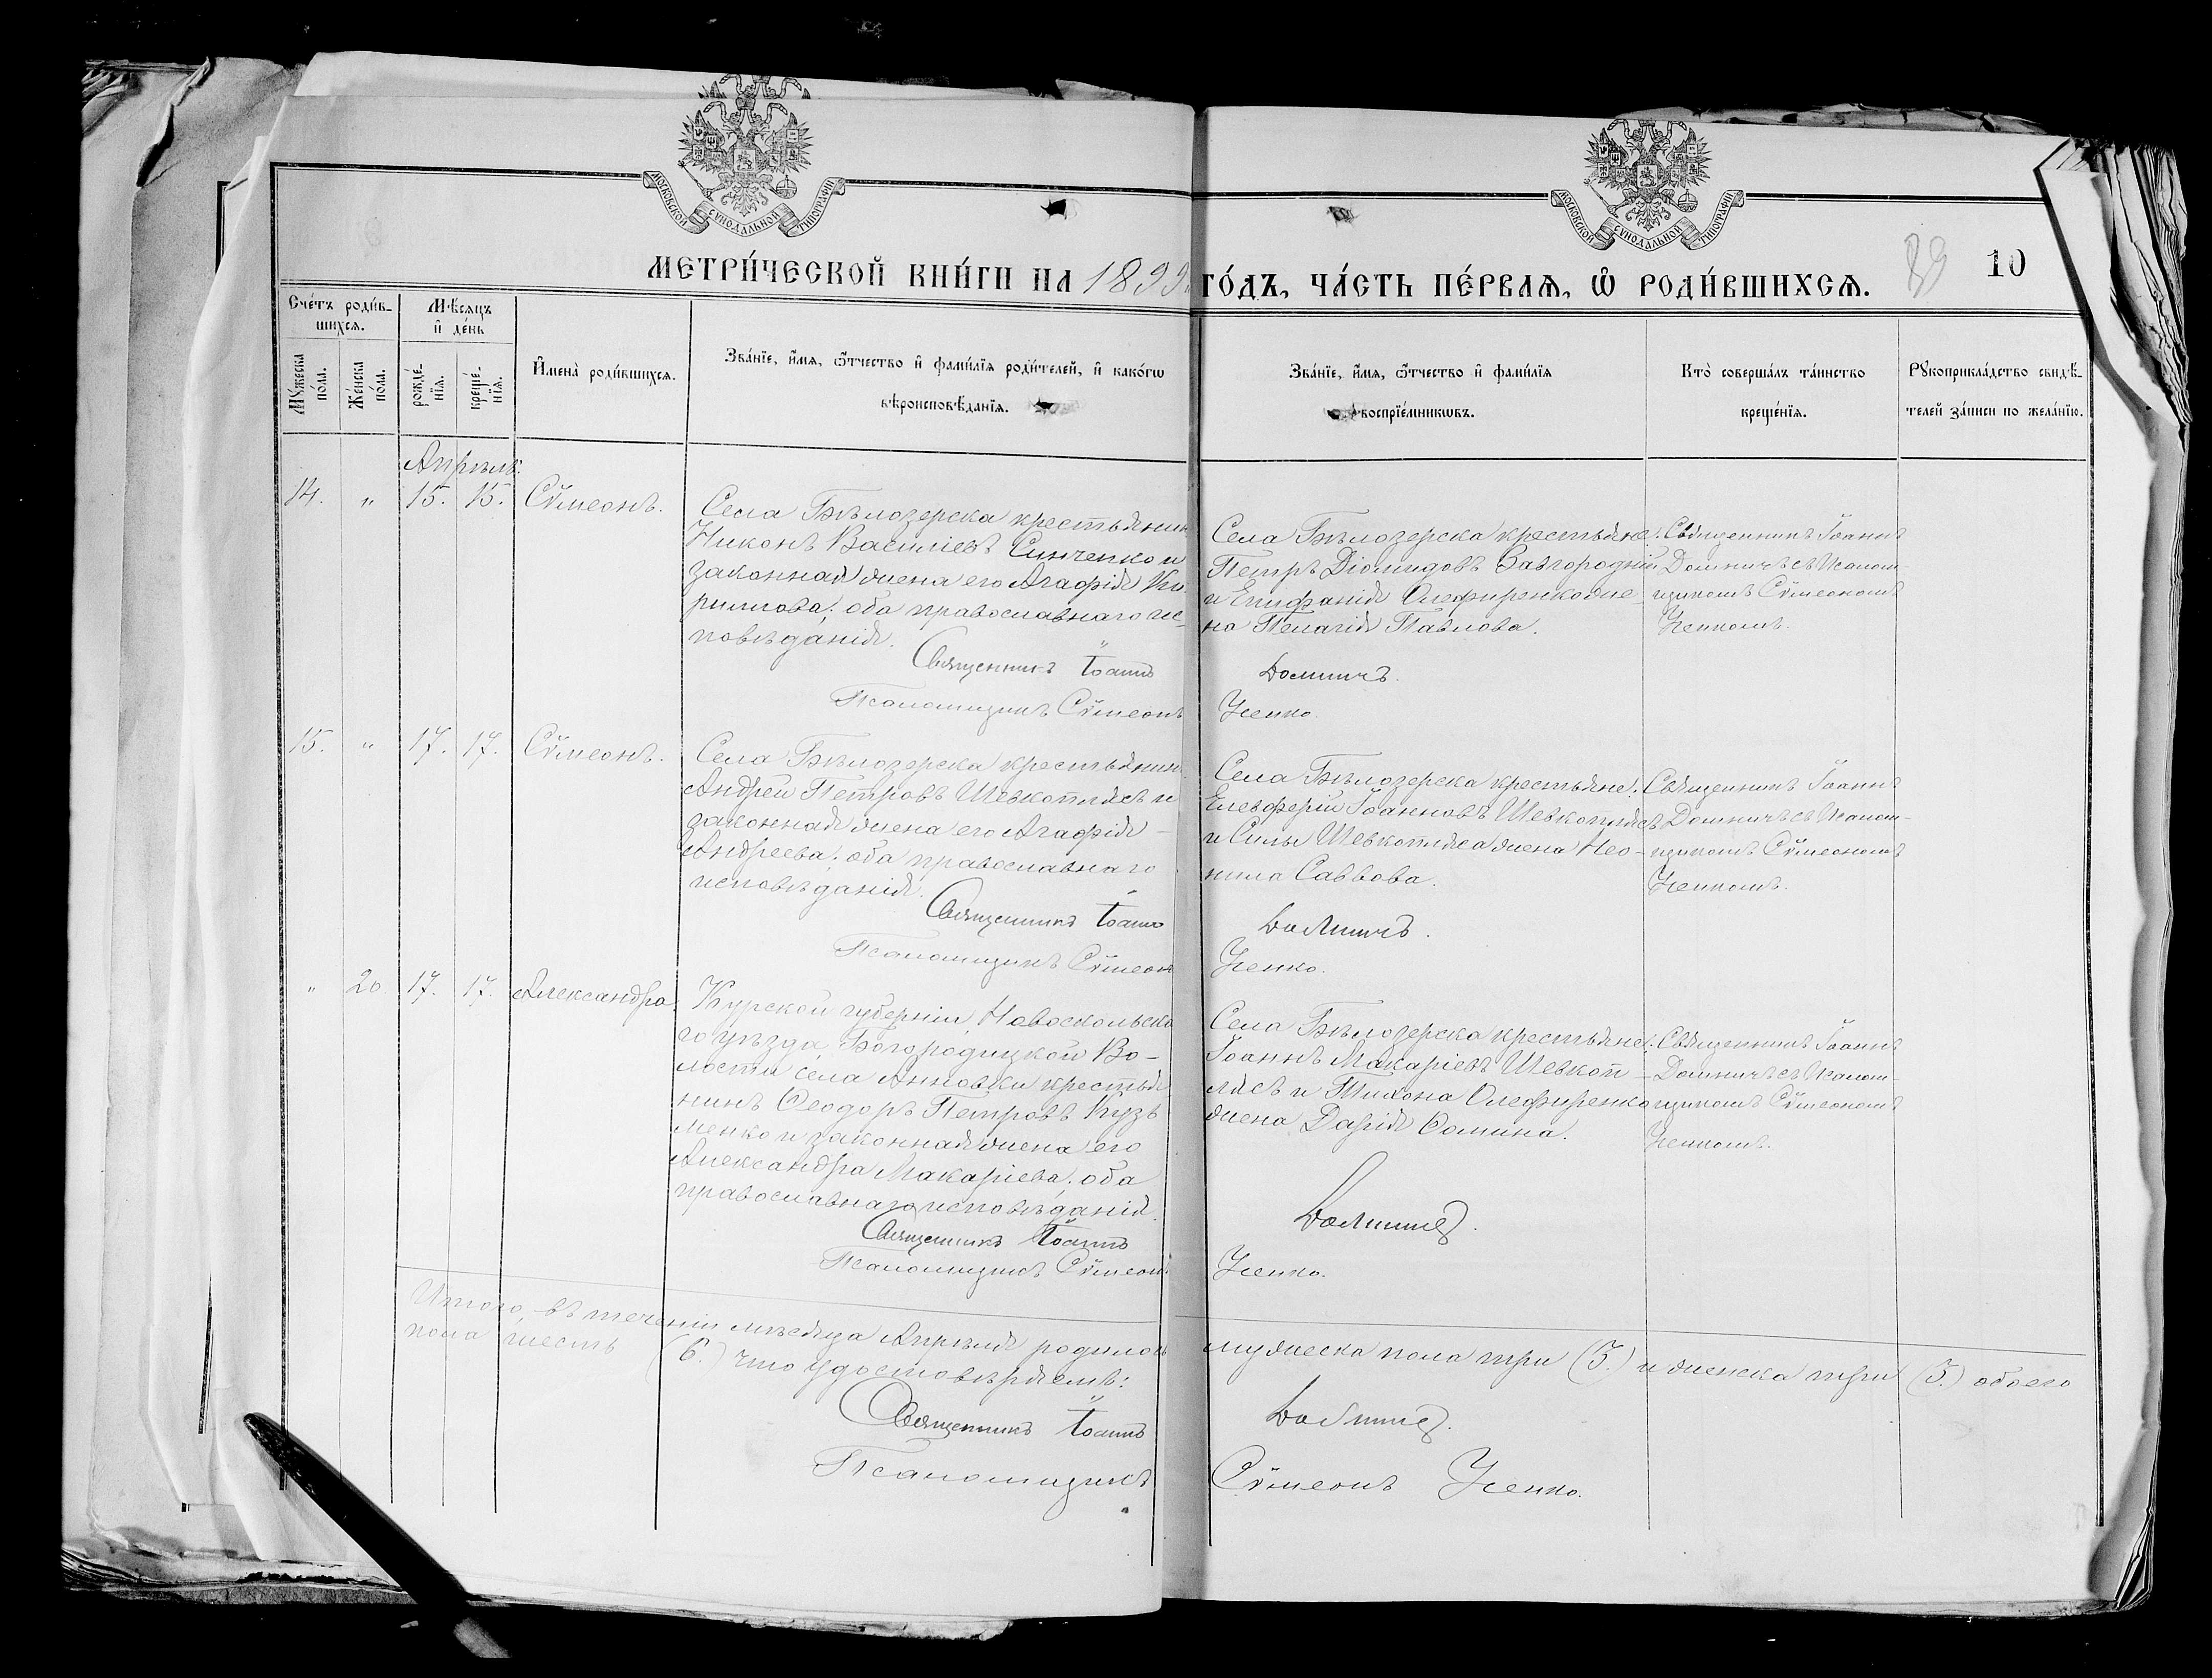 МОСКОВСКОЙ СУНОДАЛЬНОЙ ТИПОГРАФІИ
МОСКОВСКОЙ СУНОДАЛЬНОЙ ТИПОГРАФІИ
МЕТРИ́ЧЕСКОЙ КНИ́ГИ НА 1899 ГО́ДЪ, ЧА́СТЬ ПЕ́РВАЯ, Ѡ҆ РОДИ́ВШИХСЯ.
39 10
Сче́тъ роди́в-
шихся.
Мꙋ́жеска по́ла.
Же́нска по́ла.
Мѣ́сяцъ и҆ де́нь
рожде́-нїя.
креще́-нїя.
И҆мена̀ роди́вшихся.
Зва́нїе, и҆́мя, ѻ҆́тчество и҆ фами́лїя роди́телей, и҆ како́гѡ
вѣроисповѣ́данїя.
Зва́нїе, и҆́мя, ѻ҆́тчество и҆ фами́лїя
воспрїе́мникѡвъ.
Кто̀ соверша́лъ та́инство
креще́нїя.
Рꙋкоприкла́дство свидѣ́-
телей за́писи по жела́нїю.
Апрѣль.
14. " 15. 15. Сѵмеонъ.
Села Бѣлозерска крестьянинъ
Никонъ Василіевъ Синченко и
законная жена его Агафія Ки-
риллова; оба православнаго ис-
повѣданія.
Священникъ Іоаннъ
Псаломщикъ Сѵмеонъ
Села Бѣлозерска крестьяне:
Петръ Діомидовъ Завгородній
и Епифанія Олефиренко же-
на Пелагія Павлова.
Доминчъ.
Усенко.
Священникъ Іоаннъ
Доминчъ съ Псалом-
щикомъ Сѵмеономъ
Усенкомъ.
15. " 17. 17. Сѵмеонъ.
Села Бѣлозерска крестьянинъ
Андрей Петровъ Шевкоплясъ и
законная жена его Агафія
Андреева; оба православнаго
исповѣданія.
Священникъ Іоаннъ
Псаломщикъ Сѵмеонъ
Села Бѣлозерска крестьяне:
Елевферій Іоанновъ Шевкоплясъ
и Силы Шевкопляса жена Нео-
нила Саввова.
Доминчъ.
Усенко.
Священникъ Іоаннъ
Доминчъ съ Псалом-
щикомъ Сѵмеономъ
Усенкомъ.
" 20. 17. 17. Александра.
Курской губерніи, Новоскольска-
го уѣзда, Богородицкой Во-
лости села Анновки крестья-
нинъ Ѳеодоръ Петровъ Кузь-
менко и законная жена его
Александра Макаріева; оба
православнаго исповѣданія.
Священникъ Іоаннъ
Псаломщикъ Сѵмеонъ
Села Бѣлозерска крестьяне:
Іоаннъ Макаріевъ Шевкоп-
лясъ и Тихона Олефиренко
жена Дарія Ѳомина.
Доминчъ.
Усенко.
Священникъ Іоаннъ
Доминчъ съ Псалом-
щикомъ Сѵмеономъ
Усенкомъ.
Итого, въ теченіи мѣсяца Апрѣля родилось мужеска пола три (3.) и женска три (3.) обоего
пола шесть (6.) что удостовѣряемъ:
Священникъ Іоаннъ Доминчъ.
Псаломщикъ Сѵмеонъ Усенко.